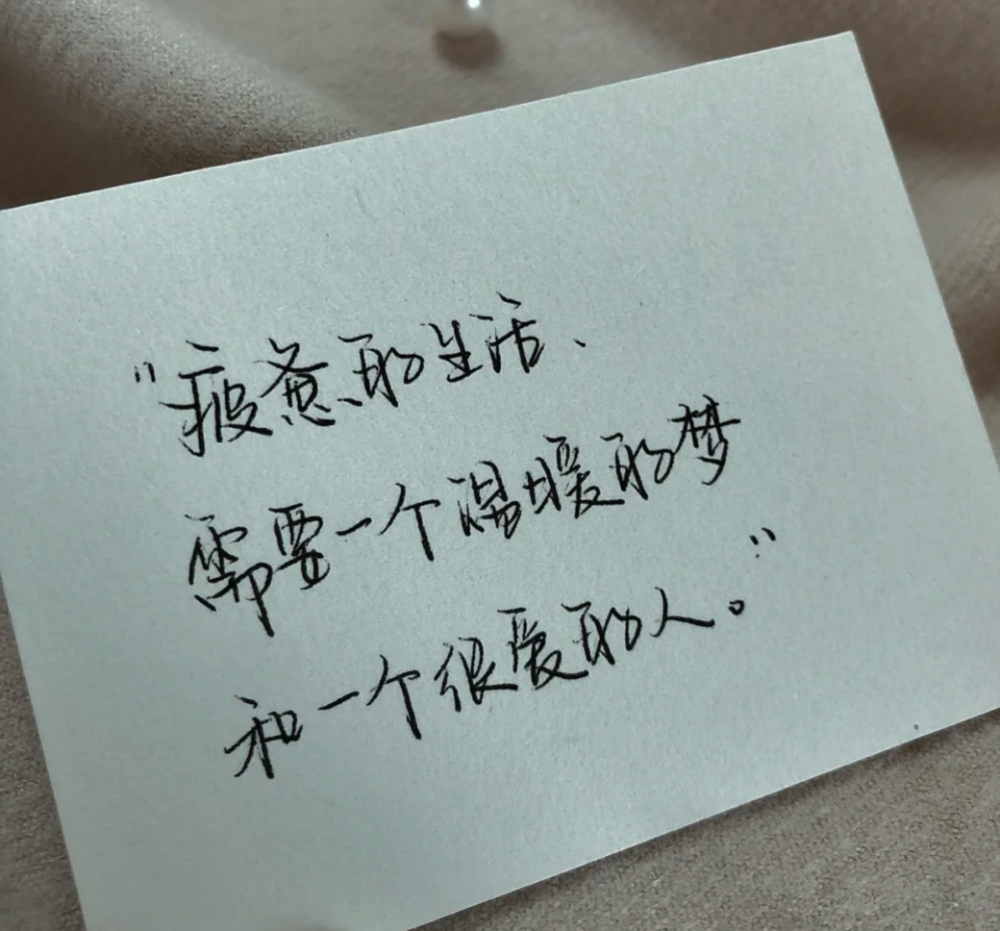 “疲惫的生活、
需要一个温暖的梦
和一个很爱的人。”